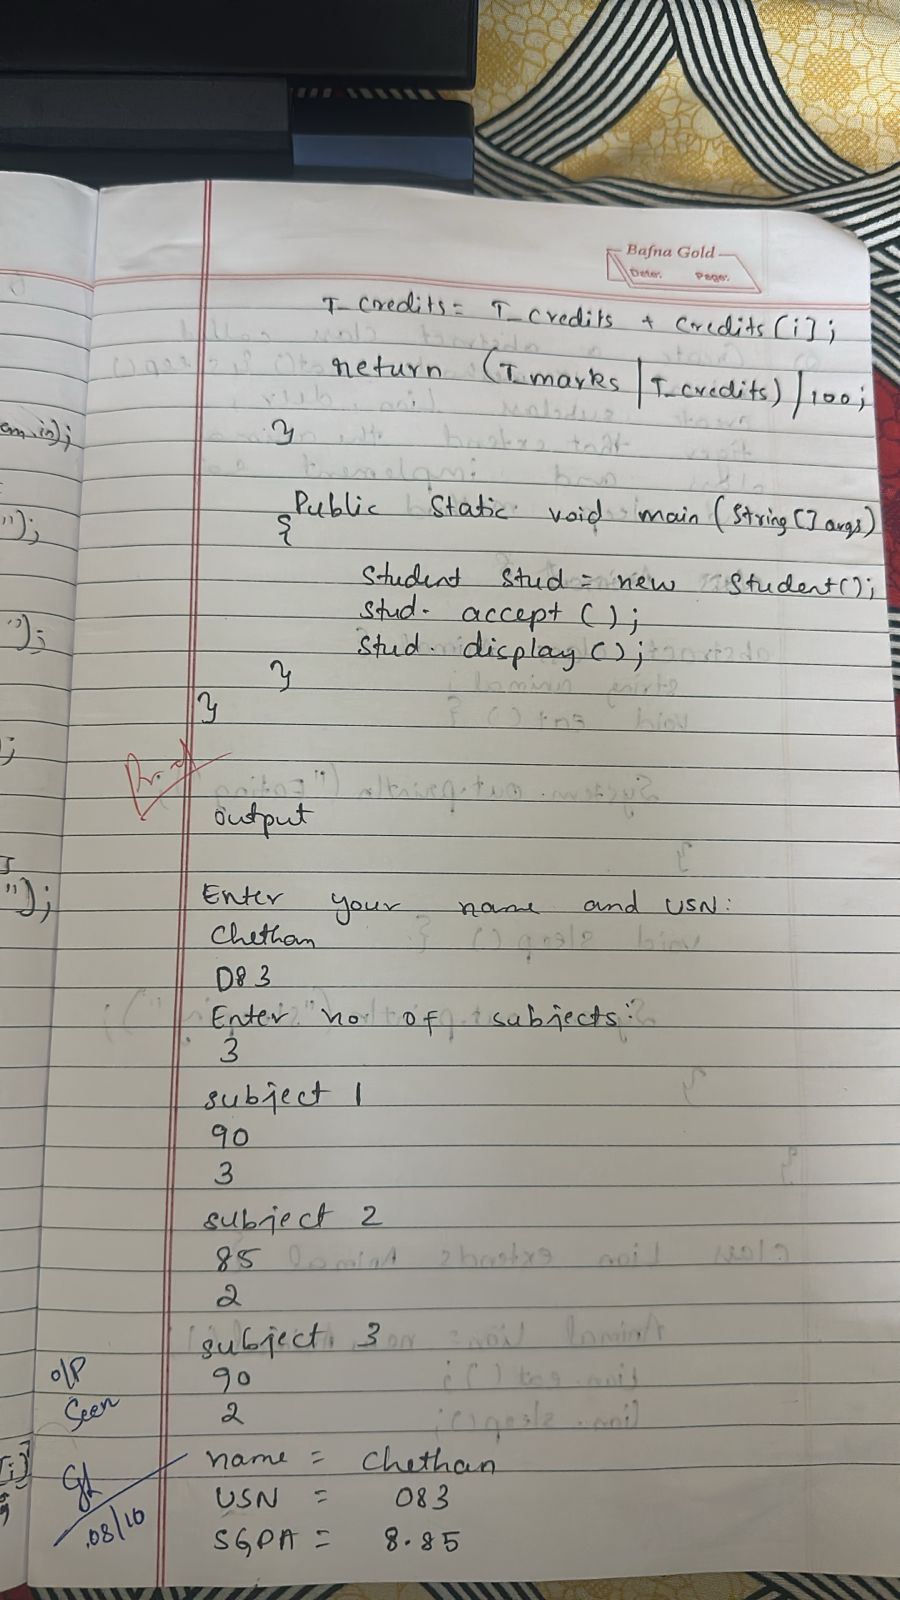 Bafna Gold
Date: Page:
T_credits = T_credits + credits[i];
return (T_marks / T_credits) / 100;
}
Public static void main(String[] args)
{
Student stud = new Student();
stud. accept();
stud. display();
}
}
output
Enter your name and USN:
Chethan
D83
Enter "no of subjects:"
3
subject 1
90
3
subject 2
85
2
subject 3
90
2
name = Chethan
USN = 083
SGPA = 8.85
em.in);
");
");
;
");
O/P
Seen
08/10